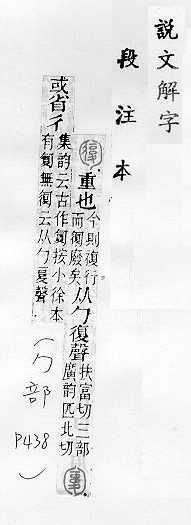 說文解字
段注本
重也
今則複行
而廢矣
从勹復聲
扶富切三部
廣韵匹北切
或省彳
集韵云古作按小徐本
有無云从勹复聲
(勹部 P438)